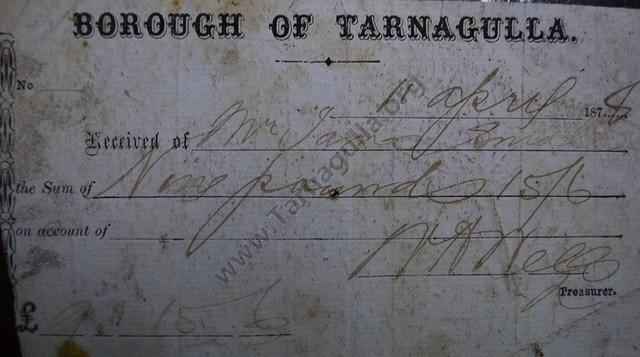 BOROUGH OF TARNAGULLA.
No
11 April 1878
Received of Mr James
the Sum of Nine pounds 15/6
on account of
Treasurer.
£ 9. 15. 6
www.Tarnagulla.org